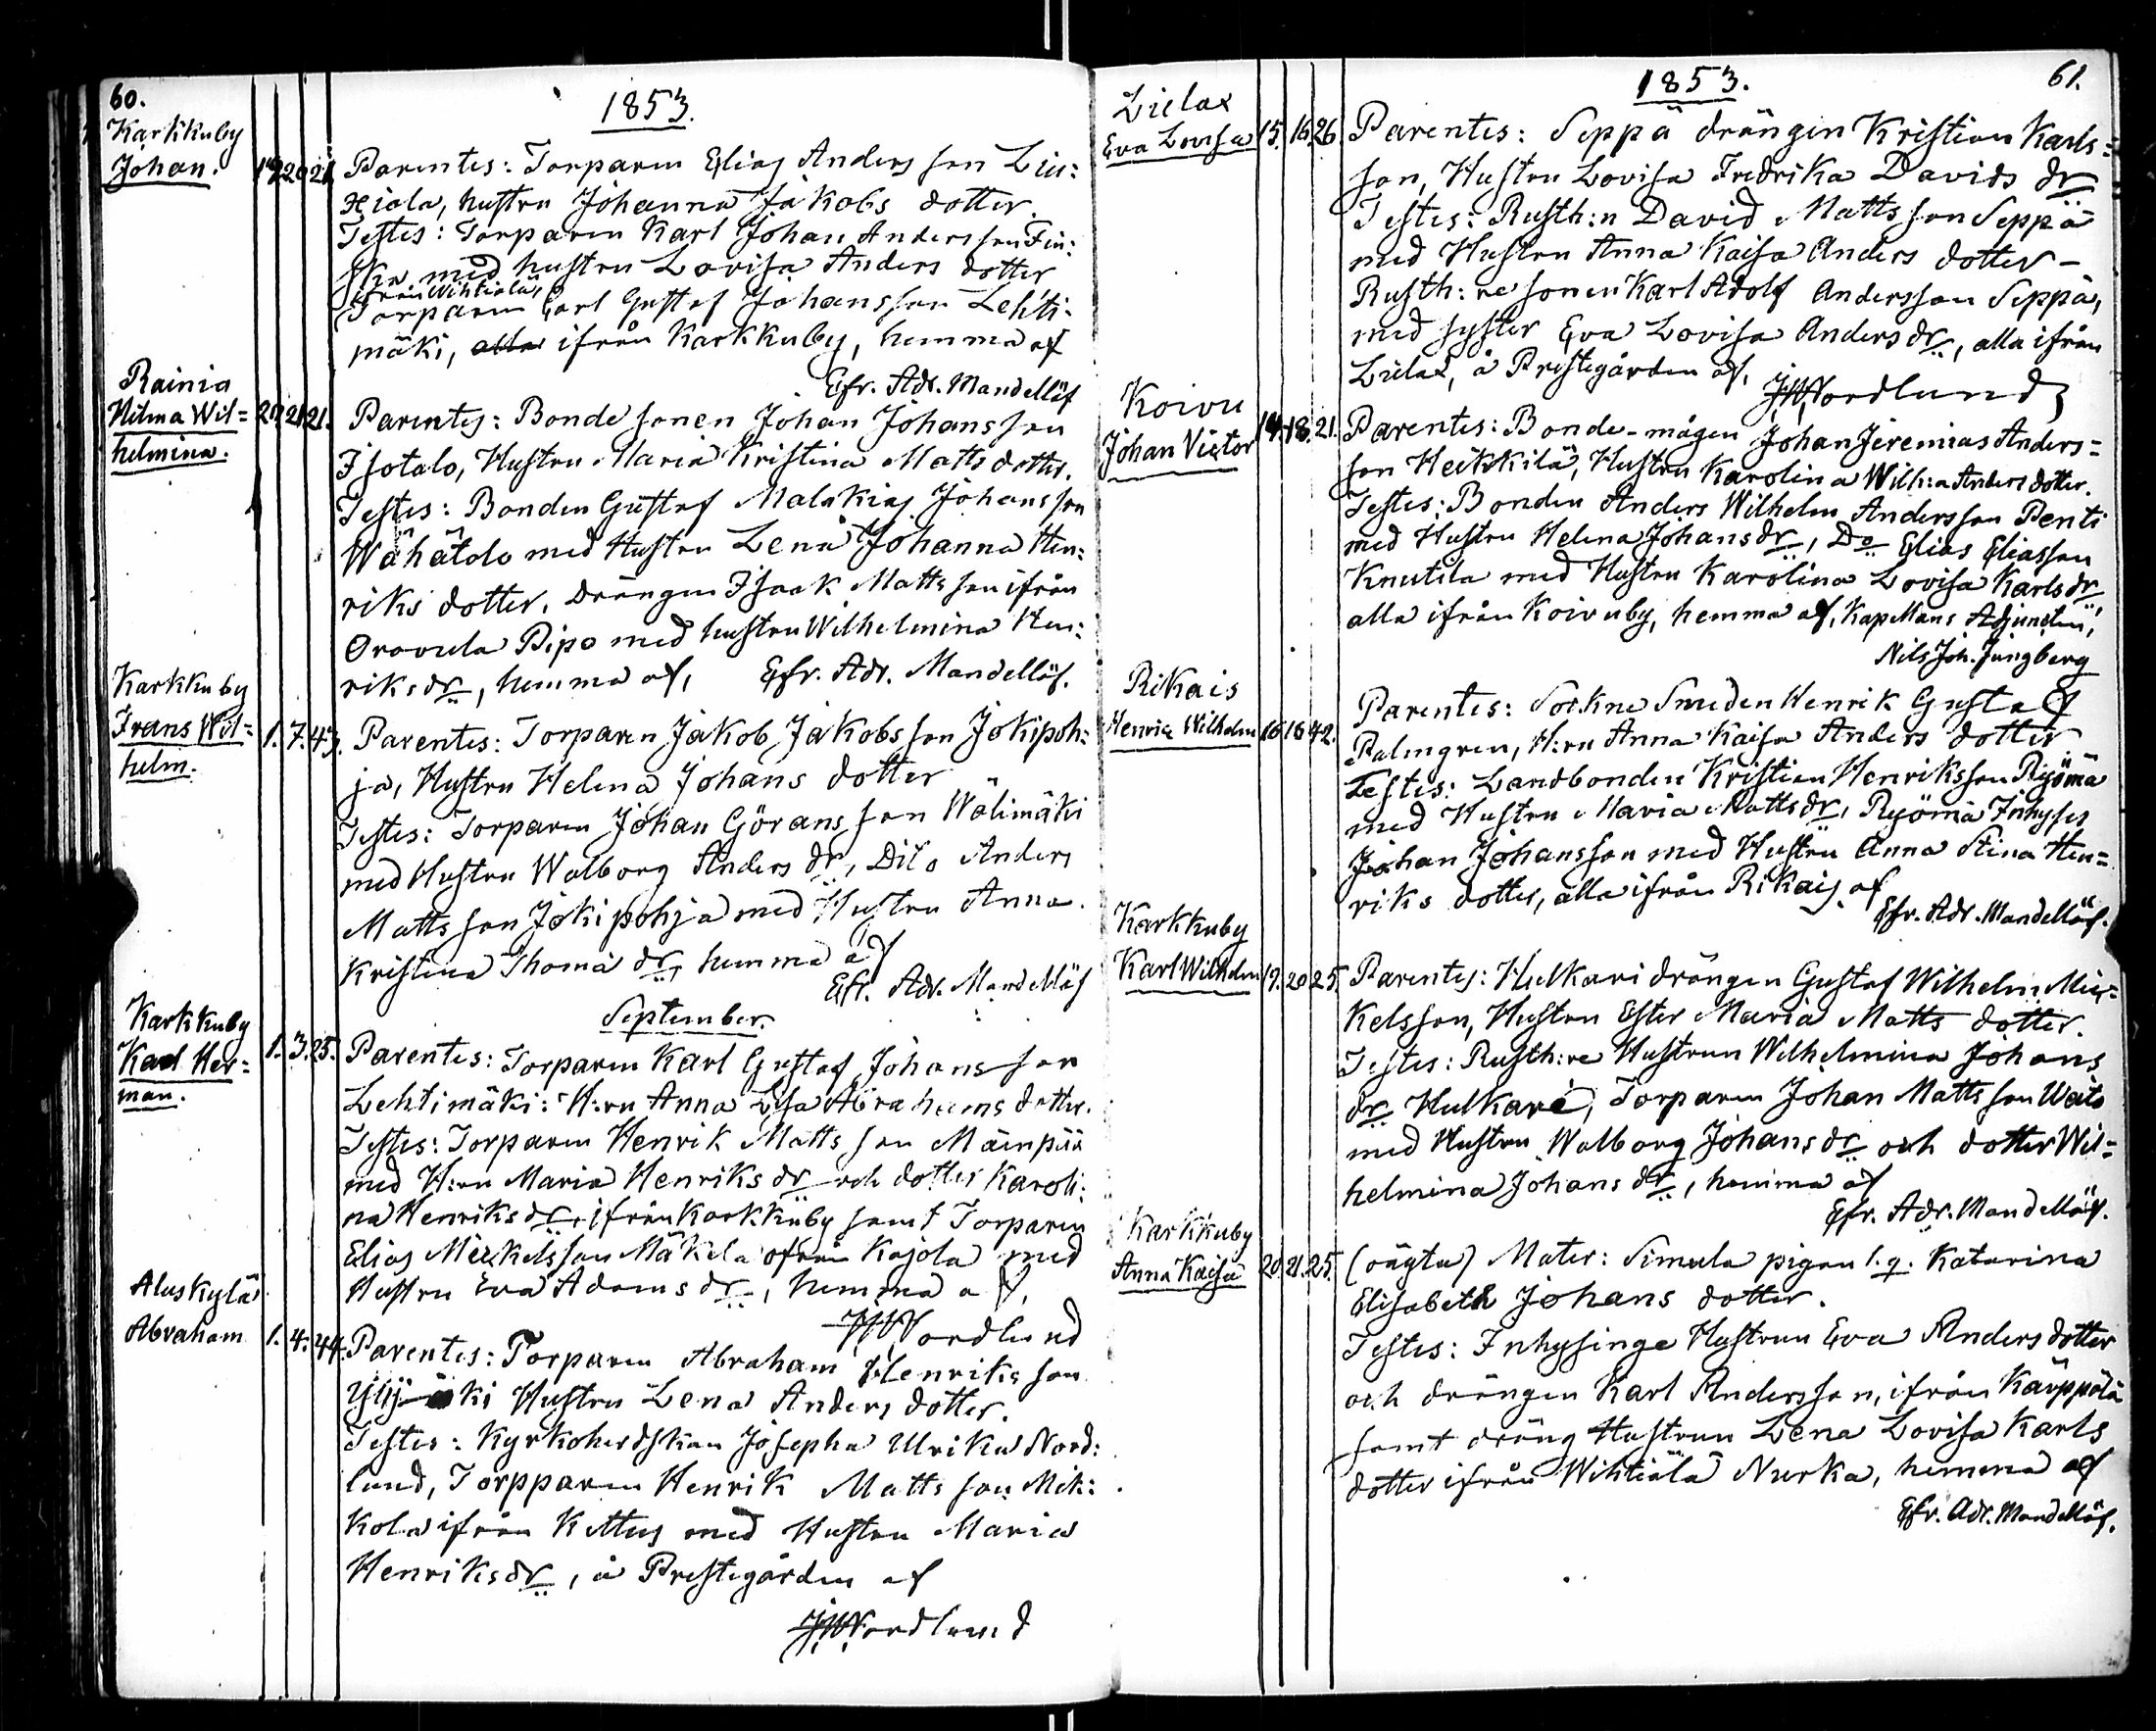 60.
1853.
Karkkuby
Johan. 19 20 21
Parentes: Torparen Elias Anders son Liu:
xiala, hustru Johanna Jakobs dotter.
Testes: Torparen Karl Johan Andersson Fin:
ska med hustru Lovisa Anders dotter
ifrån Wihtiälä,
Torparen Carl Gustaf Johansson Lehti-
mäki, ifrån Karkkuby, hemma af
Efr. Adr. Mandellöf
Rainio
Hilma Wil=
helmina. 20 21 21.
Parentes: Bonde sonen Johan Johansson
Isotalo, Hustru Maria Kristina Matts dotter.
Testes: Bonden Gustaf Malakias Johansson
Wähätalo med Hustru Lena Johanna Hen:
riks dotter, Drängen Isaak Mattsson ifrån
Oravula Pipo med hustru Wilhelmina Hen:
riks dr, hemma af, Efr. Adr. Mandellöf.
Karkkuby
Frans Wil=
helm. 1. 7. 43.
Parentes: Torparen Jakob Jakobsson Jokipoh:
ja, Hustru Helena Johans dotter
Testes: Torparen Johan Görans son Wälimäki
med Hustru Walborg Anders dr, Dito Anders
Matts son Jokipohja med Hustru Anna
Kristina Thoma dr, hemma af
Efr. Adr. Mandellöf
September.
Karkkuby
Karl Her=
man. 1. 3. 25.
Parentes: Torparen Karl Gustaf Johansson
Lehtimäki: H:ru Anna Lisa Abrahams dotter.
Testes: Torparen Henrik Matts son Mäenpää
med H:ru Maria Henriks dr och dotter Karoli:
na Henriks dr, ifrån Karkkuby samt Torparen
Elias Mickelsson Mäkelä ifrån Kojola med
Hustru Eva Adams dr, hemma af,
JWNordlund
Aluskylä
Abraham 1. 4. 44.
Parentes: Torparen Abraham Henriks son
Hustru Lena Anders dotter.
Testes: Kyrkoherdskan Josepha Ulrika Nord:
lund, Torpparen Henrik Matts son Mik:
kola ifrån Kittus med Hustru Maria
Henriks dr, å Prestegården af
JWNordlund
61.
1853.
Lielax
Eva Lovisa 15. 16. 26.
Parentes: Seppä drängen Kristian Karls=
son, Hustru Lovisa Fredrika Davids dr
Testes: Rusth:n David Mattsson Seppä
med Hustru Anna Kaisa Anders dotter –
Rusth:re sonen Karl Adolf Andersson Seppä,
med syster Eva Lovisa Anders dr, alla ifrån
Lielax, å Prestegården af, JWNordlund
Koivu
Johan Victor 14. 18. 21.
Parentes: Bonde-mågen Johan Jeremias Anders=
son Heikkilä, Hustru Karolina Wilh:a Anders dotter.
Testes: Bonden Anders Wilhelm Andersson Penti
med Hustru Helena Johans dr, Do Elias Eliasson
Knutila med Hustru Karolina Lovisa Karls dr
alla ifrån Koivuby, hemma af, Kapellans Adjuncten,
Nils Joh. Jungberg
Rikais
Henric Wilhelm 16 16 42.
Parentes: Sockne Smeden Henrik Gustaf
Palmgren, H:ru Anna Kaisa Anders dotter
Testes: Landbonden Kristian Henriksson Ryömä
med Hustru Maria Matts dr, Ryömä Inhyses
Johan Johansson med Hustru Anna Stina Hen=
riks dotter, alla ifrån Rikais. af
Efr. Adr. Mandellöf.
Karkkuby
Karl Wilhelm 19. 20 25.
Parentes: Hulkari drängen Gustaf Wilhelm Mic=
kelsson, Hustru Ester Maria Matts dotter.
Testes: Rusth:re Hustrun Wilhelmina Johans
dr Hulkari, Torparen Johan Matts son Weito
med Hustru Walborg Johans dr och dotter Wil=
helmina Johans dr, hemma af
Efr. Adr. Mandellöf.
Karkkuby
Anna Kaisa 20. 21. 25.
(oägta) Mater: Simula pigan l. q. Katarina
Elisabeth Johans dotter.
Testes: Inhysinge Hustrun Eva Anders dotter
och drängen Karl Andersson, ifrån Kärppälä
samt dräng Hustrun Lena Lovisa Karls
dotter ifrån Wihtiälä Nurka, hemma af
Efr. Adr. Mandellöf.